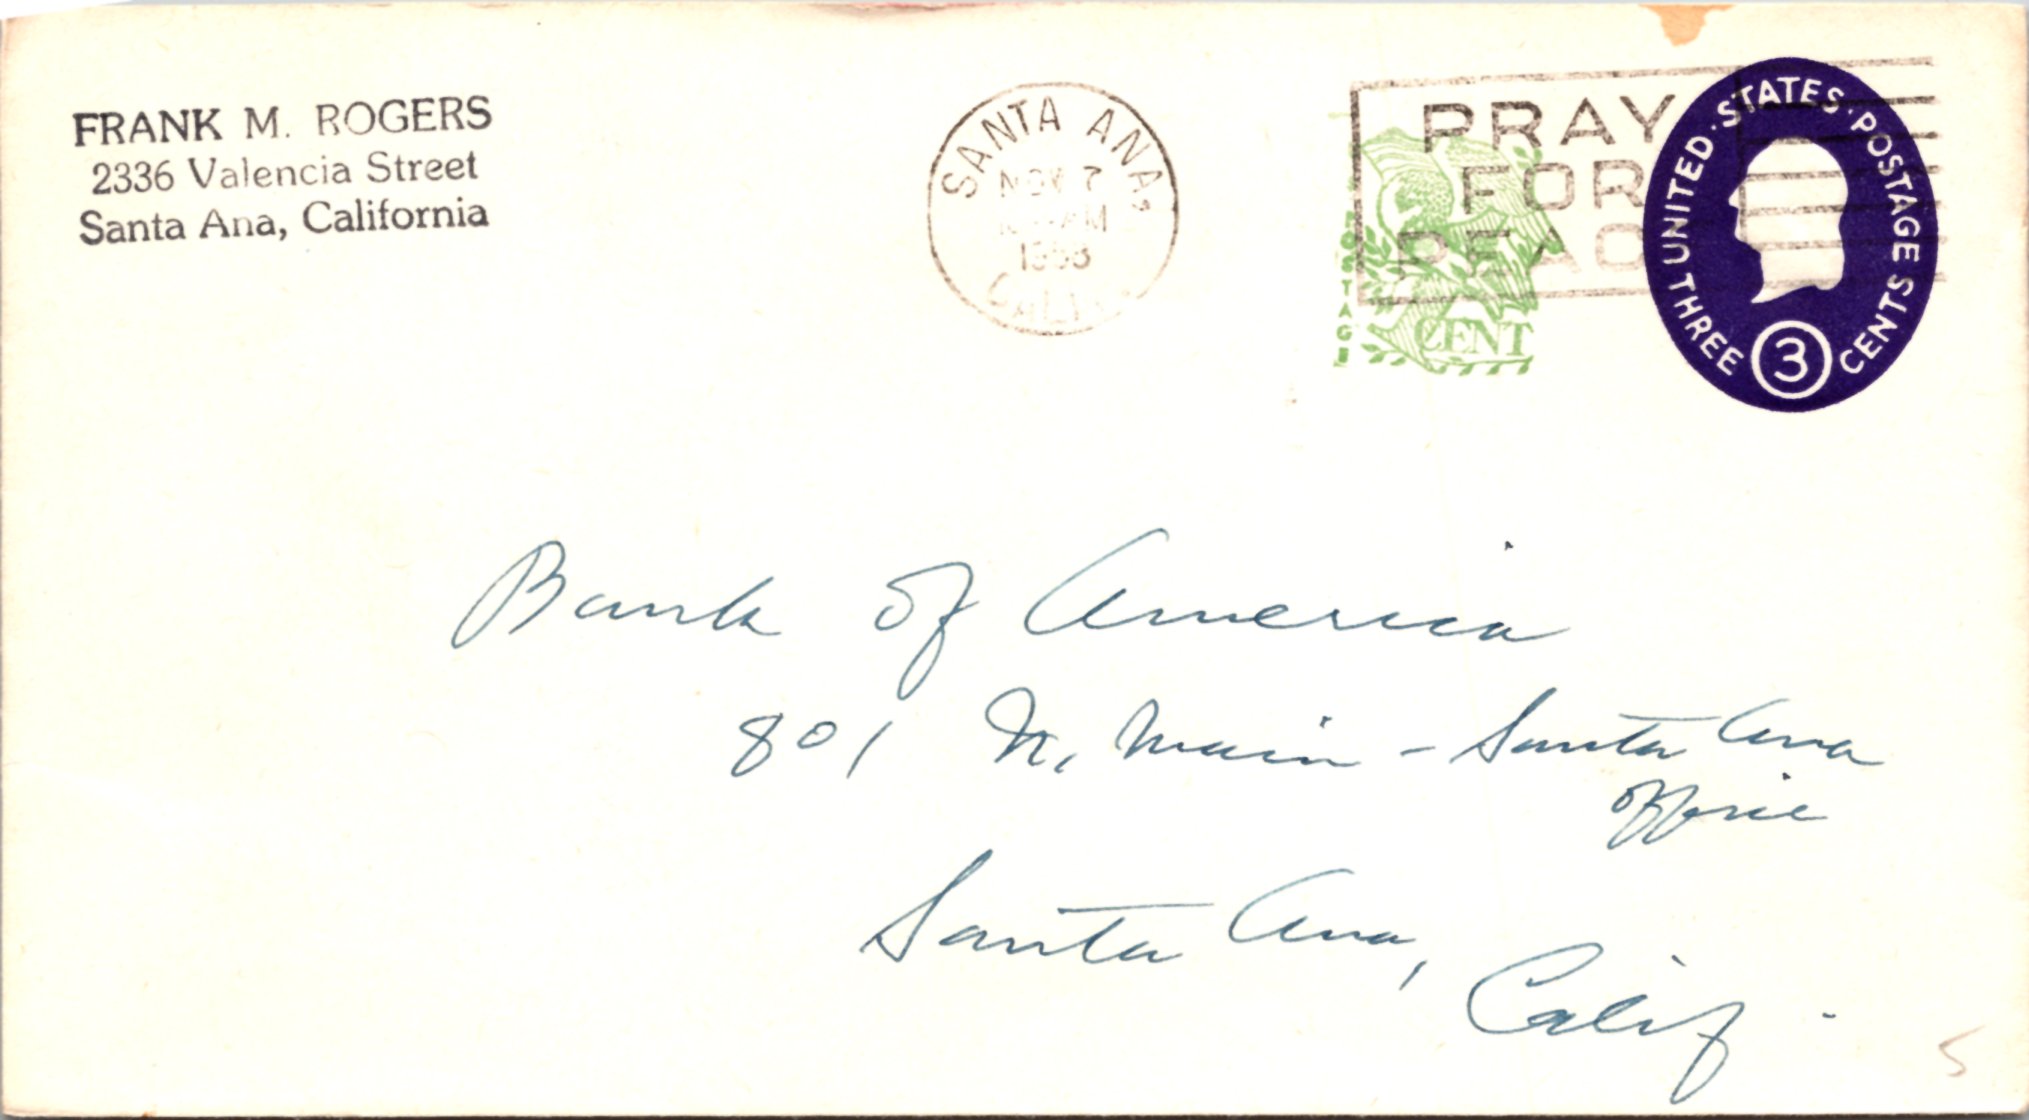 FRANK M. ROGERS
2336 Valencia Street
Santa Ana, California
SANTA ANA,
NOV 7
AM
1958
CALIF.
PRAY
FOR
PEAC
POSTAGE
CENT
UNITED · STATES · POSTAGE
THREE 3 CENTS
Bank of America
801 N. Main - Santa Ana
Office
Santa Ana,
Calif.
5